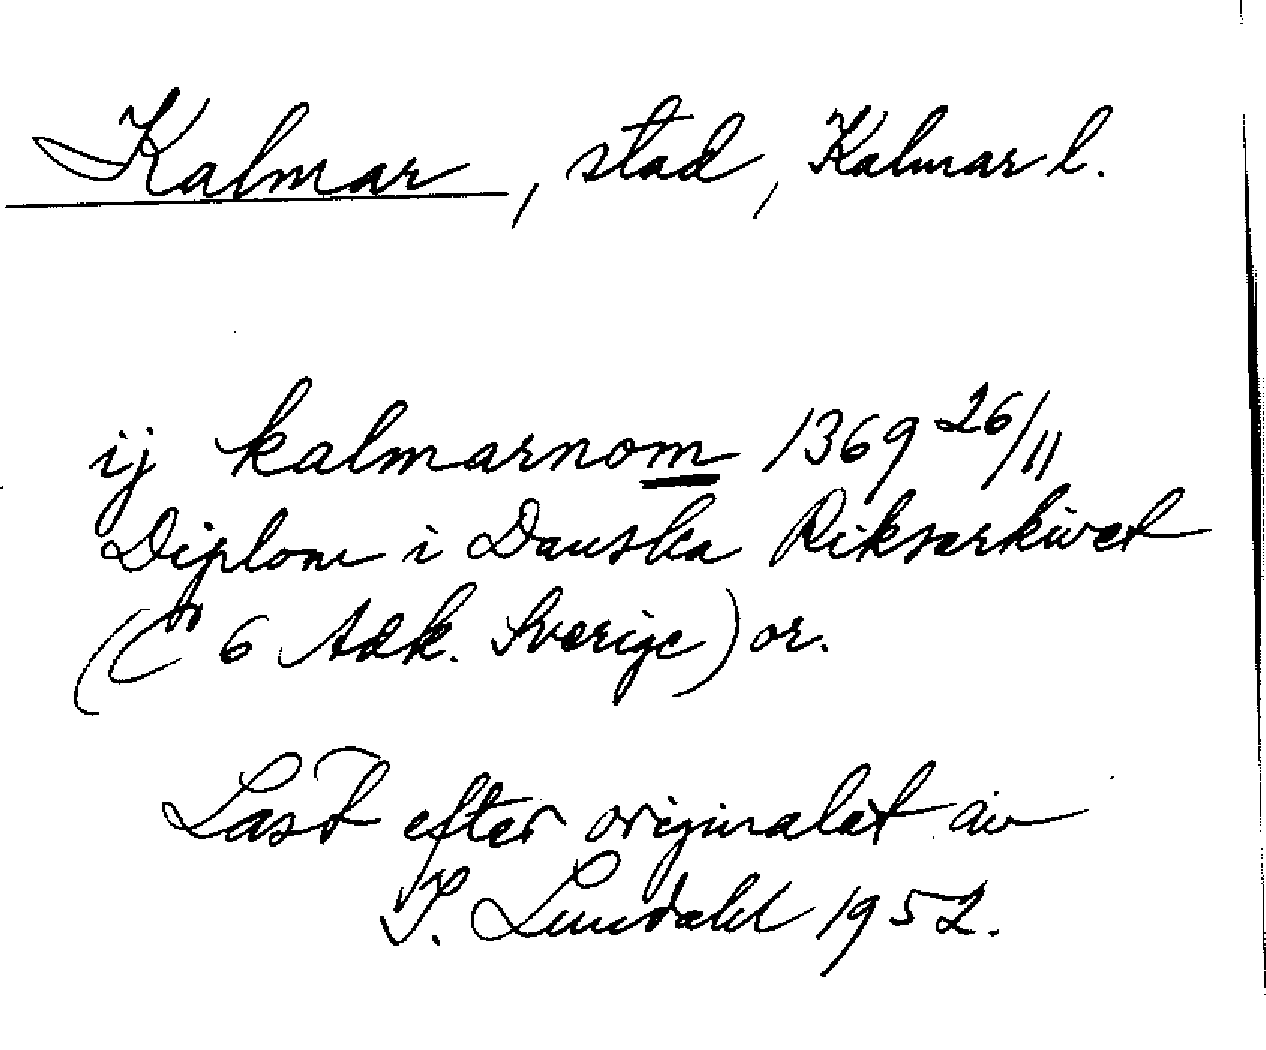 Kalmar, stad, Kalmar l.
ij kalmarnom 1369 26/11
Diplom i Danska Riksarkivet
(C 6 Adk. Sverige) or.
Läst efter originalet av
I. Lundahl 1952.